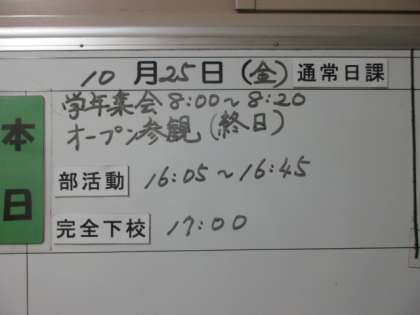 10月25日(金)通常日課
本日
学年集会 8:00~8:20
オープン参観(終日)
部活動 16:05~16:45
完全下校 17:00